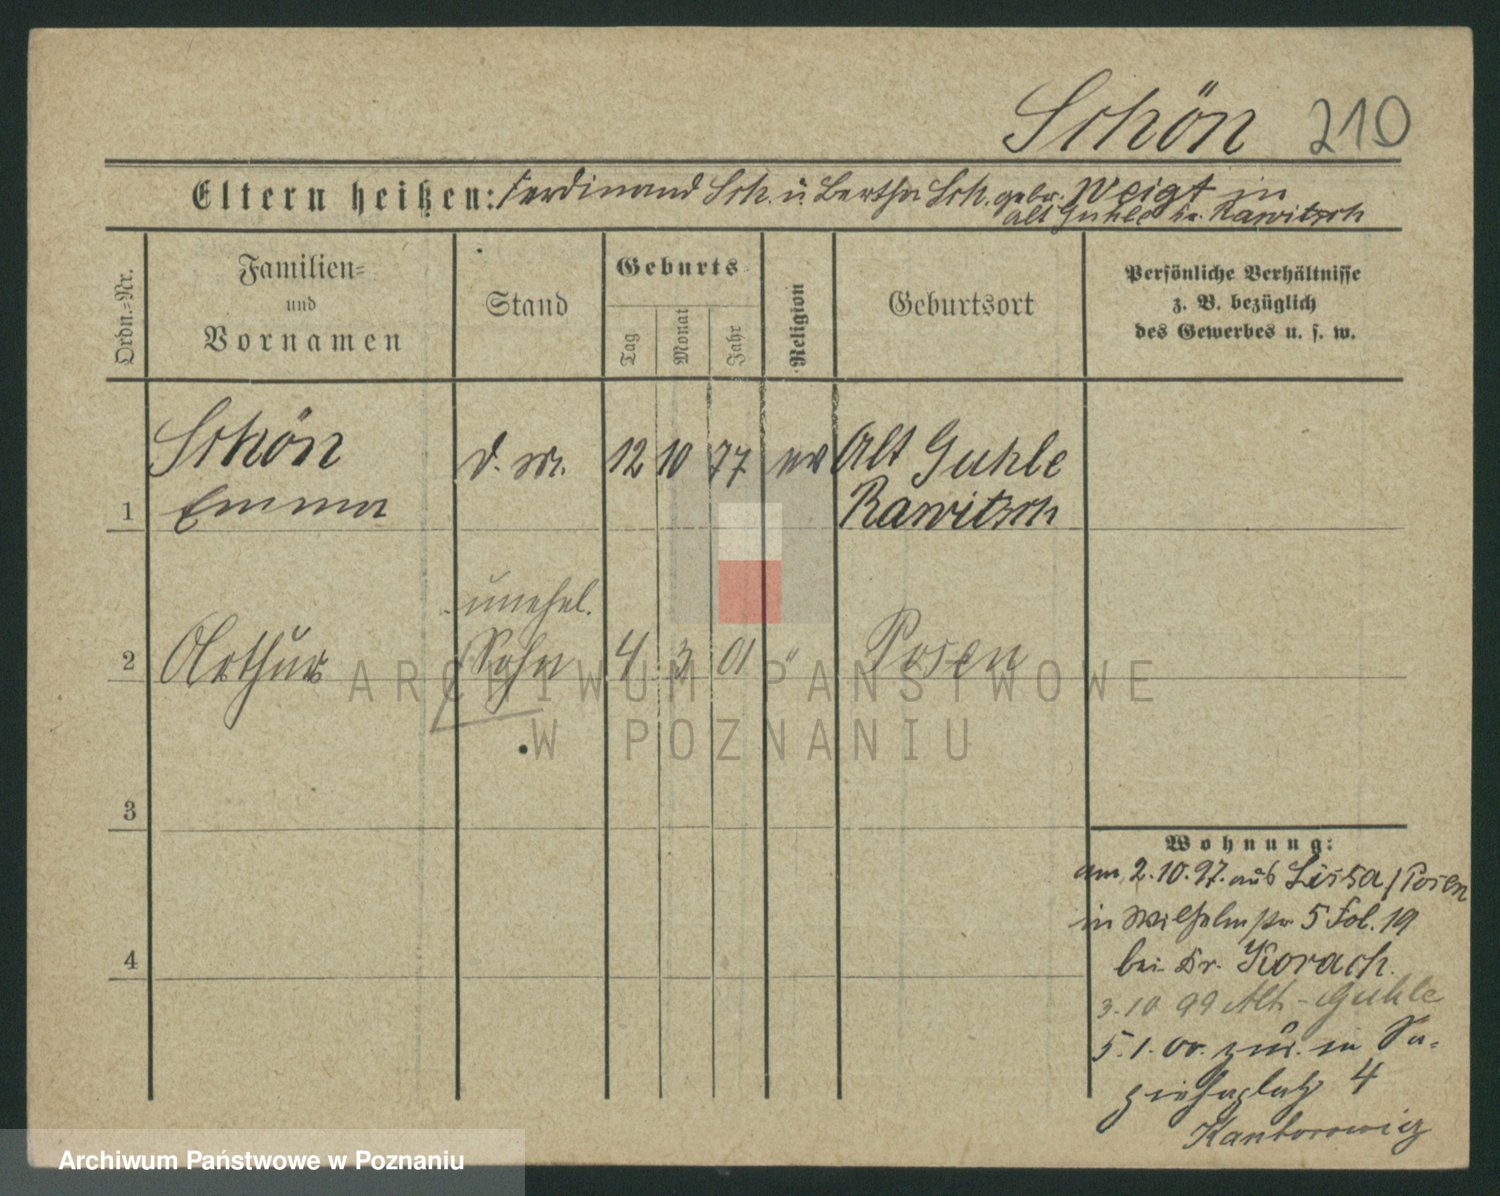 Schön 210
Eltern heißen: Ferdinand Sch. u. Bertha Sch. gebr. Weigt in
Alt Guhle Kr. Rawitsch
Ordn.-Nr.
Familien-
und
Vornamen
Stand
Geburts
Tag
Monat
Jahr
Religion
Geburtsort
Persönliche Verhältnisse
z. B. bezüglich
des Gewerbes u. s. w.
1
Schön
Emma
d. M.
12 10 77 ev
Alt Guhle
Rawitsch
2
Arthur
unehel.
Sohn
4 3 01 "
Posen
ARCHIWUM PAŃSTWOWE
W POZNANIU
3
4
Wohnung:
am 2.10.97. aus Lissa / Posen
in Wilhelmstr 5 Fol. 19
bei Dr. Korach.
3.10 99 Alt-Guhle
5.1.00. zur. in Sa-
piehaplatz 4
Kantorowicz
Archiwum Państwowe w Poznaniu